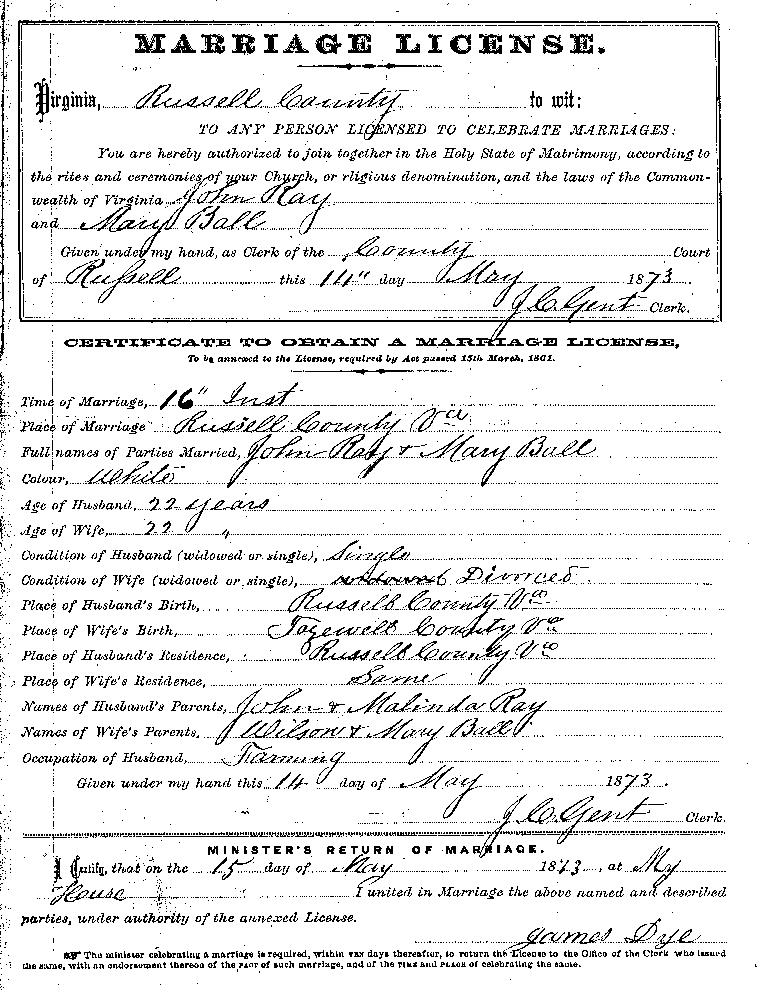 MARRIAGE LICENSE.
Virginia, Russell County to wit:
TO ANY PERSON LICENSED TO CELEBRATE MARRIAGES:
You are hereby authorized to join together in the Holy State of Matrimony, according to
the rites and ceremonies of your Church, or rligious denomination, and the laws of the Common-
wealth of Virginia John Ray
and Mary Ball
Given under my hand, as Clerk of the County Court
of Russell this 14" day May 1873.
J C Gent Clerk.
CERTIFICATE TO OBTAIN A MARRIAGE LICENSE,
To be annexed to the License, required by Act passed 15th March, 1861.
Time of Marriage, 16" Inst
Place of Marriage Russell County Va
Full names of Parties Married, John Ray & Mary Ball
Colour, White
Age of Husband, 22 years
Age of Wife, 22 "
Condition of Husband (widowed or single), Single
Condition of Wife (widowed or single), widowed Divorced
Place of Husband's Birth, Russell County Va
Place of Wife's Birth, Tazewell County Va
Place of Husband's Residence, Russell County Va
Place of Wife's Residence, Same
Names of Husband's Parents, John & Malinda Ray
Names of Wife's Parents. Wilson & Mary Ball
Occupation of Husband, Farming
Given under my hand this 14 day of May 1873.
J C Gent Clerk.
MINISTER'S RETURN OF MARRIAGE.
I Certify, that on the 15 day of May 1873, at My
House I united in Marriage the above named and described
parties, under authority of the annexed License.
James Dye
☞ The minister celebrating a marriage is required, within TEN days thereafter, to return the License to the Office of the Clerk who issued
the same, with an endorsement thereon of the FACT of such marriage, and of the TIME and PLACE of celebrating the same.